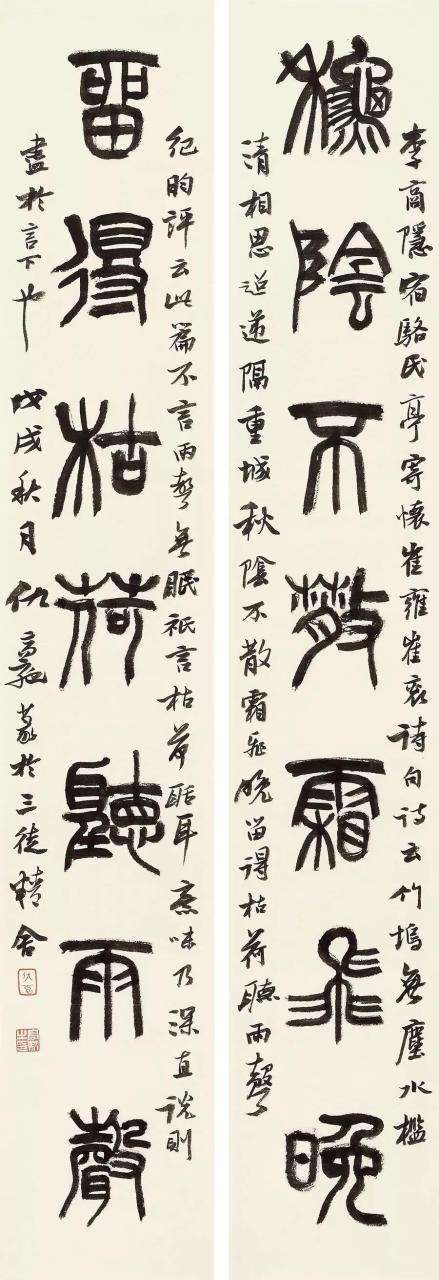 李商隱宿駱氏亭寄懷崔雍崔衮詩句詩云竹塢無塵水檻
龝陰不散霜飛晚
清相思迢遞隔重城秋陰不散霜飛晚留得枯荷聽雨聲
紀昀評云此篇不言雨聲無眠祇言枯荷聒耳意味乃深直說則
留得枯荷聽雨聲
盡於言下也 戊戌秋月仇高馳篆於三徒精舍